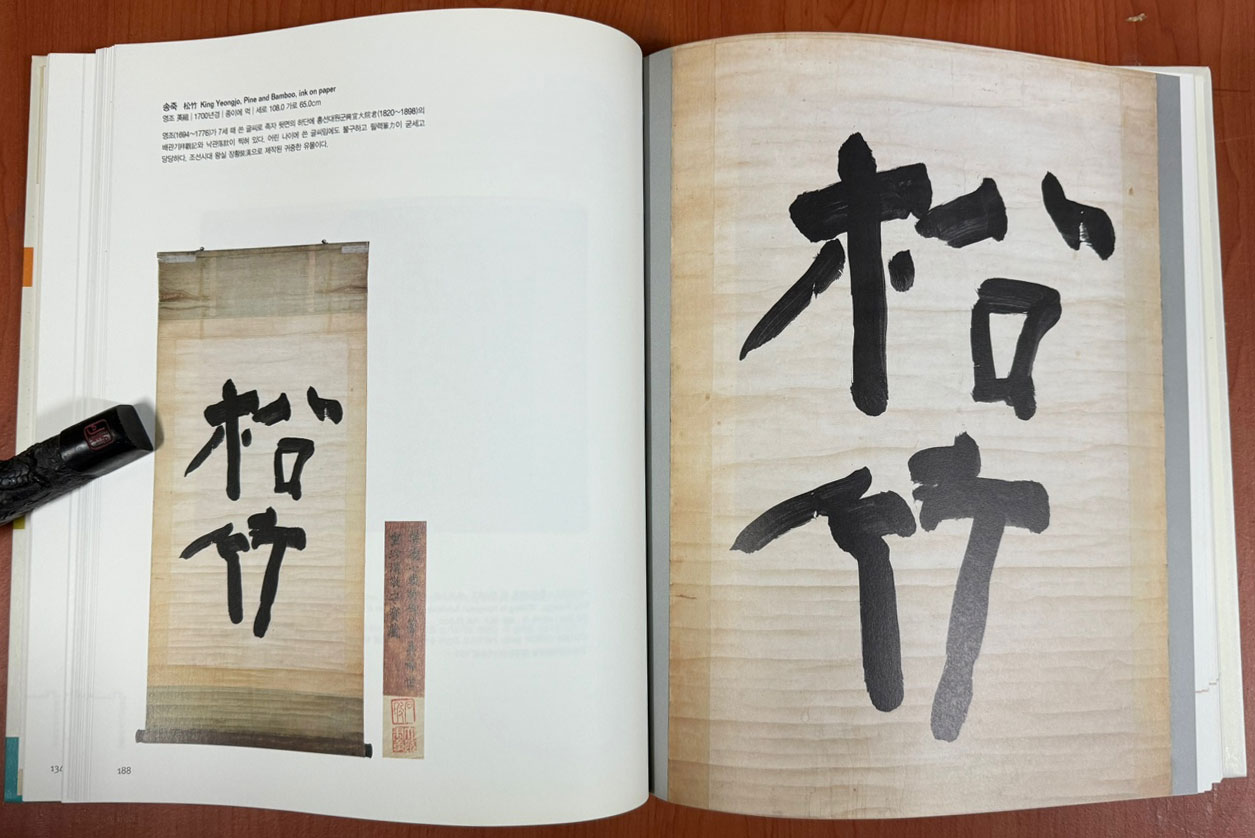 송죽 松竹 King Yeongjo, Pine and Bamboo, ink on paper
영조 英祖 | 1700년경 | 종이에 먹 | 세로 108.0 가로 65.0cm
영조(1694~1776)가 7세 때 쓴 글씨로 족자 뒷면의 하단에 흥선대원군興宣大院君(1820~1898)의
배관기拜觀記와 낙관落款이 찍혀 있다. 어린 나이에 쓴 글씨임에도 불구하고 필력筆力이 굳세고
당당하다. 조선시대 왕실 장황裝潢으로 제작된 귀중한 유물이다.
松
竹
134
188
松
竹